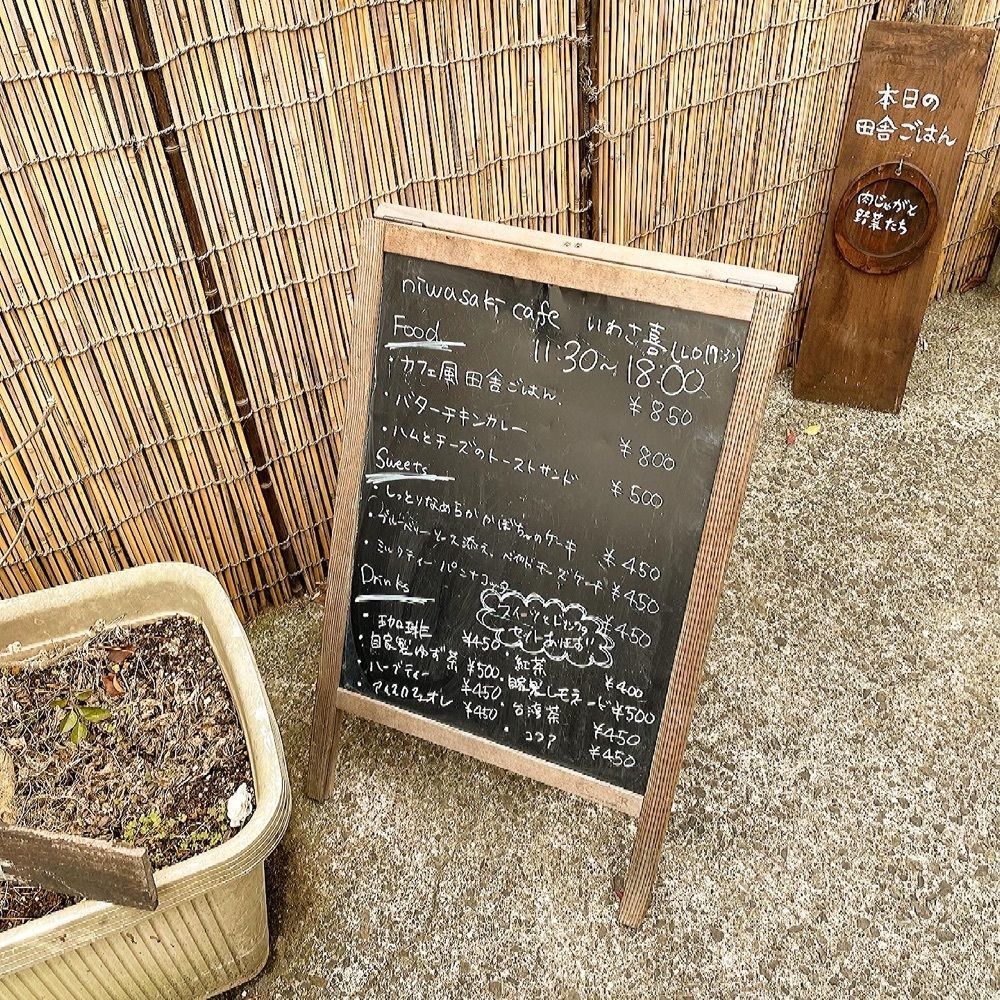 niwasaki cafe いわさ喜 (L.O.17:30)
11:30〜18:00
Food
・カフェ風田舎ごはん ¥850
・バターチキンカレー ¥800
・ハムとチーズのトーストサンド ¥500
Sweets
・しっとりなめらかかぼちゃのケーキ ¥450
・ブルーベリーソース添え、ベイクドチーズケーキ ¥450
・ミルクティーパンナコッタ ¥450
スイーツとドリンクの
セット
Drinks
・珈琲 ¥450
・自家製ゆず茶 ¥500
・ハーブティー ¥450
・アイスカフェオレ ¥450
・紅茶 ¥400
・自家製レモネード ¥500
・台湾茶 ¥450
・ココア ¥450
本日の
田舎ごはん
肉じゃがと
野菜たち